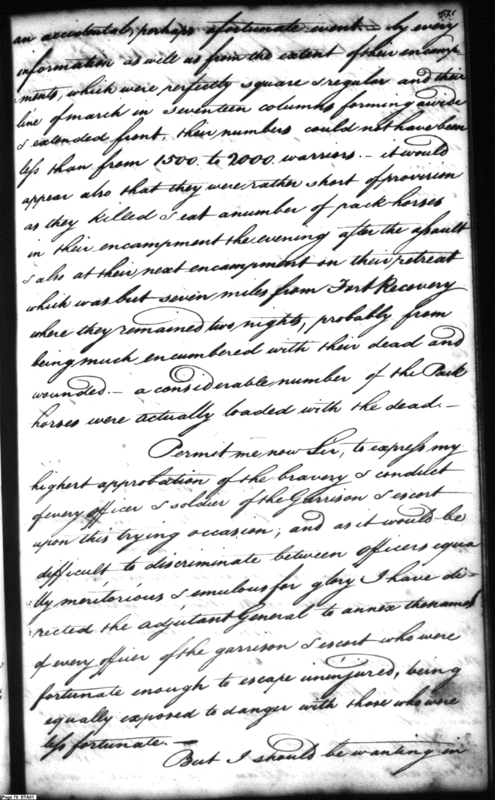 an accidental, perhaps a fortunate event. - by every
information as well as from the extent of their encamp-
ments, which were perfectly square & regular and their
line of march in seventeen columns forming a wide
& extended front, their numbers could not have been
less than from 1500. to 2000. warriors. - it would
appear also that they were rather short of provision
as they killed & eat a number of pack horses
in their encampment the evening after the assault
& also at their next encampment on their retreat
which was but seven miles from Fort Recovery
where they remained two nights, probably from
being much encumbered with their dead and
wounded. - a considerable number of the Pack
horses were actually loaded with the dead. -
Permit me now Sir, to express my
highest approbation of the bravery & conduct
of every officer & soldier of the Garrison & escort
upon this trying occasion; and as it would be
difficult to discriminate between officers equa
lly meritorious & emulous for glory I have di-
rected the adjutant General to annex the names
of every officer of the garrison & escort who were
fortunate enough to escape uninjured, being
equally exposed to danger with those who were
less fortunate. -
But I should be wanting in